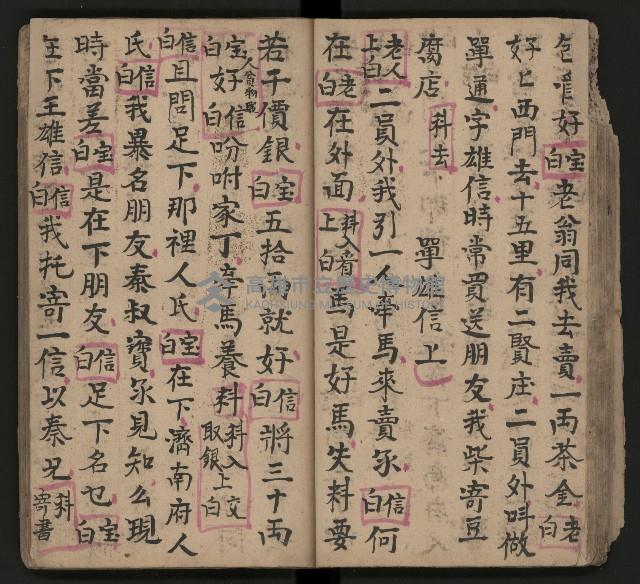 包唯好宝白老翁同我去賣一両茶金老白
好上西門去十五里有二賢庄二員外呌做
單通字雄信時常買送朋友我柴寄豆
腐店科去　單雄信上
老人上白二員外我引一人牽馬來賣尔信白何
在老白在外面科入看上白馬是好馬失料要
若干價銀宝白五拾両就好信白將三十両
宝白好人貧物賤信白吩咐家丁牽馬養料科入取銀上交白
信白且問足下那裡人氏宝白在下濟南府人
氏信白我慕名朋友秦叔寶尔見知么現
時當差宝白是在下朋友信白足下名乜宝白
在下王雄信信白我托寄一信以秦兄科寄書
高雄市立歷史博物館
KAOHSIUNG MUSEUM OF HISTORY